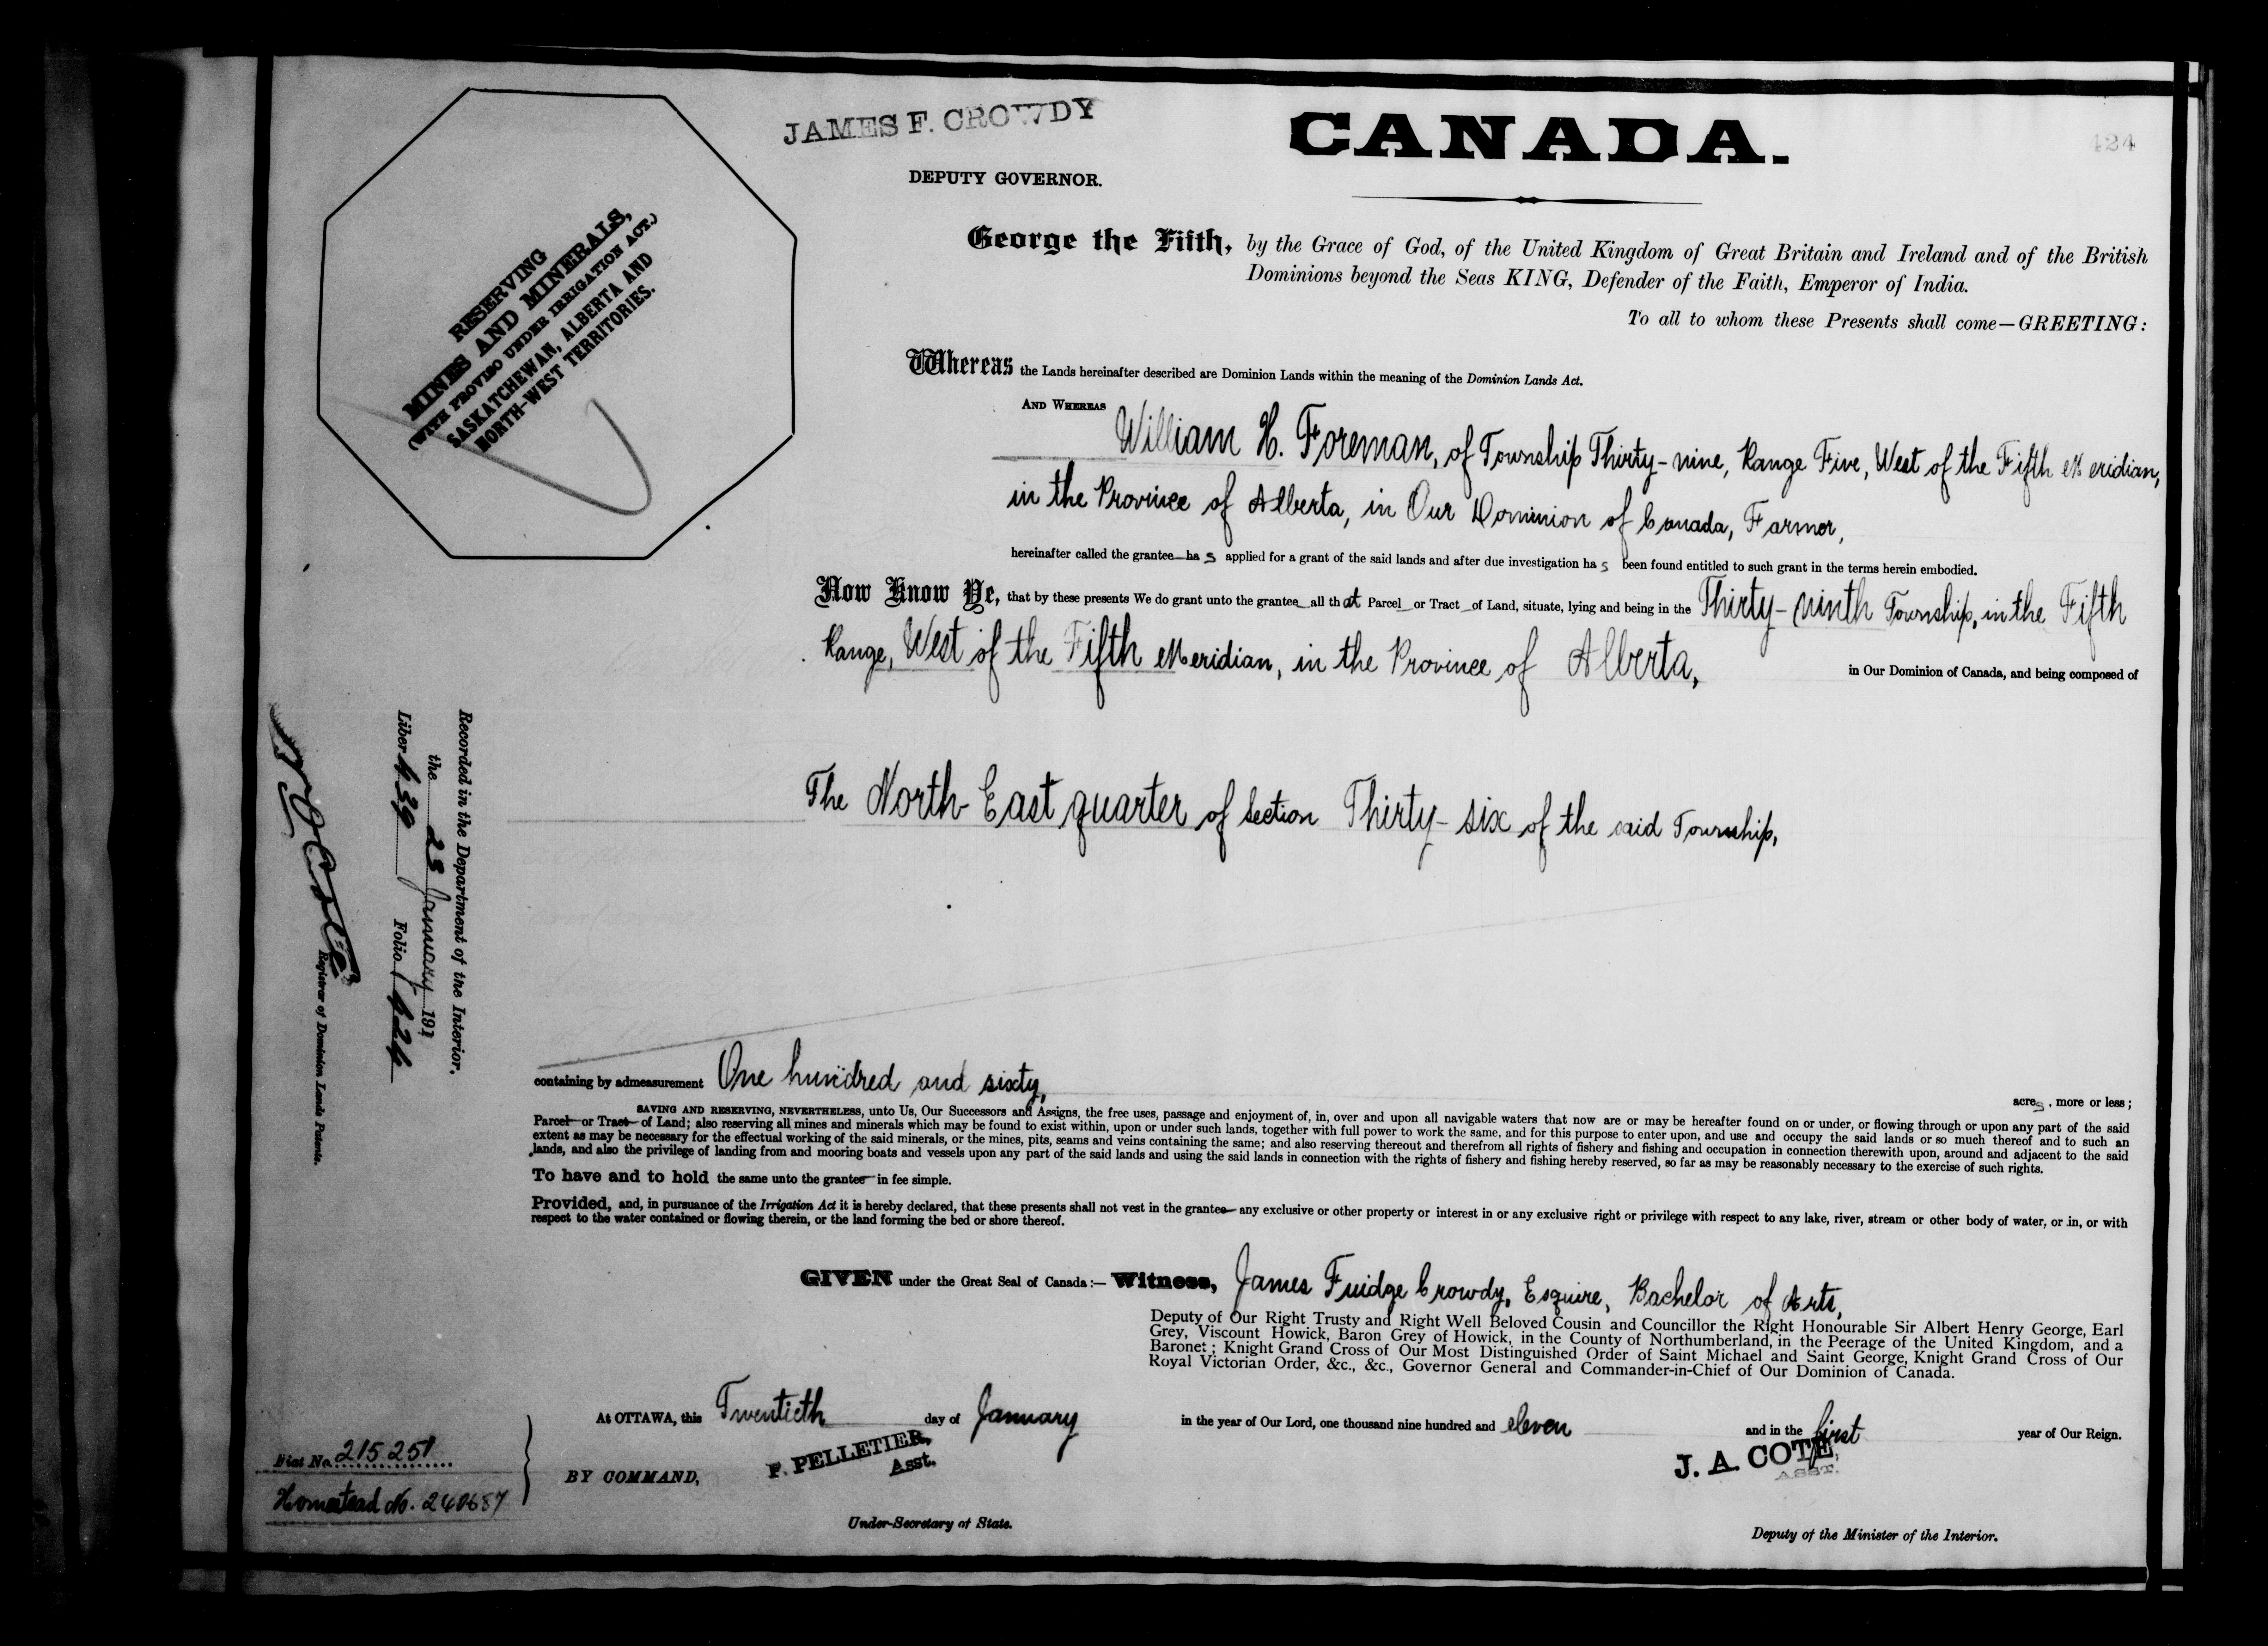 JAMES F. CROWDY
DEPUTY GOVERNOR.
CANADA.
424
RESERVING
MINES AND MINERALS,
(WITH PROVISO UNDER IRRIGATION ACT.)
SASKATCHEWAN, ALBERTA AND
NORTH-WEST TERRITORIES.
George the Fifth, by the Grace of God, of the United Kingdom of Great Britain and Ireland and of the British
Dominions beyond the Seas KING, Defender of the Faith, Emperor of India.
To all to whom these Presents shall come—GREETING:
Whereas the Lands hereinafter described are Dominion Lands within the meaning of the Dominion Lands Act.
AND WHEREAS William H. Foreman, of Township Thirty-nine, Range Five, West of the Fifth Meridian,
in the Province of Alberta, in Our Dominion of Canada, Farmer,
hereinafter called the grantee has applied for a grant of the said lands and after due investigation has been found entitled to such grant in the terms herein embodied.
Now Know Ye, that by these presents We do grant unto the grantee all that Parcel or Tract of Land, situate, lying and being in the Thirty-ninth Township, in the Fifth
Range, West of the Fifth Meridian, in the Province of Alberta, in Our Dominion of Canada, and being composed of
The North East quarter of Section Thirty-six of the said Township,
containing by admeasurement One hundred and sixty, acres, more or less;
SAVING AND RESERVING, NEVERTHELESS, unto Us, Our Successors and Assigns, the free uses, passage and enjoyment of, in, over and upon all navigable waters that now are or may be hereafter found on or under, or flowing through or upon any part of the said
Parcel or Tract of Land; also reserving all mines and minerals which may be found to exist within, upon or under such lands, together with full power to work the same, and for this purpose to enter upon, and use and occupy the said lands or so much thereof and to such an
extent as may be necessary for the effectual working of the said minerals, or the mines, pits, seams and veins containing the same; and also reserving thereout and therefrom all rights of fishery and fishing and occupation in connection therewith upon, around and adjacent to the said
lands, and also the privilege of landing from and mooring boats and vessels upon any part of the said lands and using the said lands in connection with the rights of fishery and fishing hereby reserved, so far as may be reasonably necessary to the exercise of such rights.
To have and to hold the same unto the grantee in fee simple.
Provided, and, in pursuance of the Irrigation Act it is hereby declared, that these presents shall not vest in the grantee any exclusive or other property or interest in or any exclusive right or privilege with respect to any lake, river, stream or other body of water, or in, or with
respect to the water contained or flowing therein, or the land forming the bed or shore thereof.
GIVEN under the Great Seal of Canada:— Witness, James Fuidge Crowdy, Esquire, Bachelor of Arts,
Deputy of Our Right Trusty and Right Well Beloved Cousin and Councillor the Right Honourable Sir Albert Henry George, Earl
Grey, Viscount Howick, Baron Grey of Howick, in the County of Northumberland, in the Peerage of the United Kingdom, and a
Baronet; Knight Grand Cross of Our Most Distinguished Order of Saint Michael and Saint George, Knight Grand Cross of Our
Royal Victorian Order, &c., &c., Governor General and Commander-in-Chief of Our Dominion of Canada.
At OTTAWA, this Twentieth day of January in the year of Our Lord, one thousand nine hundred and eleven and in the first year of Our Reign.
BY COMMAND,
P. PELLETIER,
Asst.
Under-Secretary of State.
J. A. COTE,
ASST.
Deputy of the Minister of the Interior.
Recorded in the Department of the Interior,
the 23 January 1911
Liber 439 Folio 424
N O Coté
Registrar of Dominion Lands Patents.
Fiat No. 215251
Homestead No. 240687